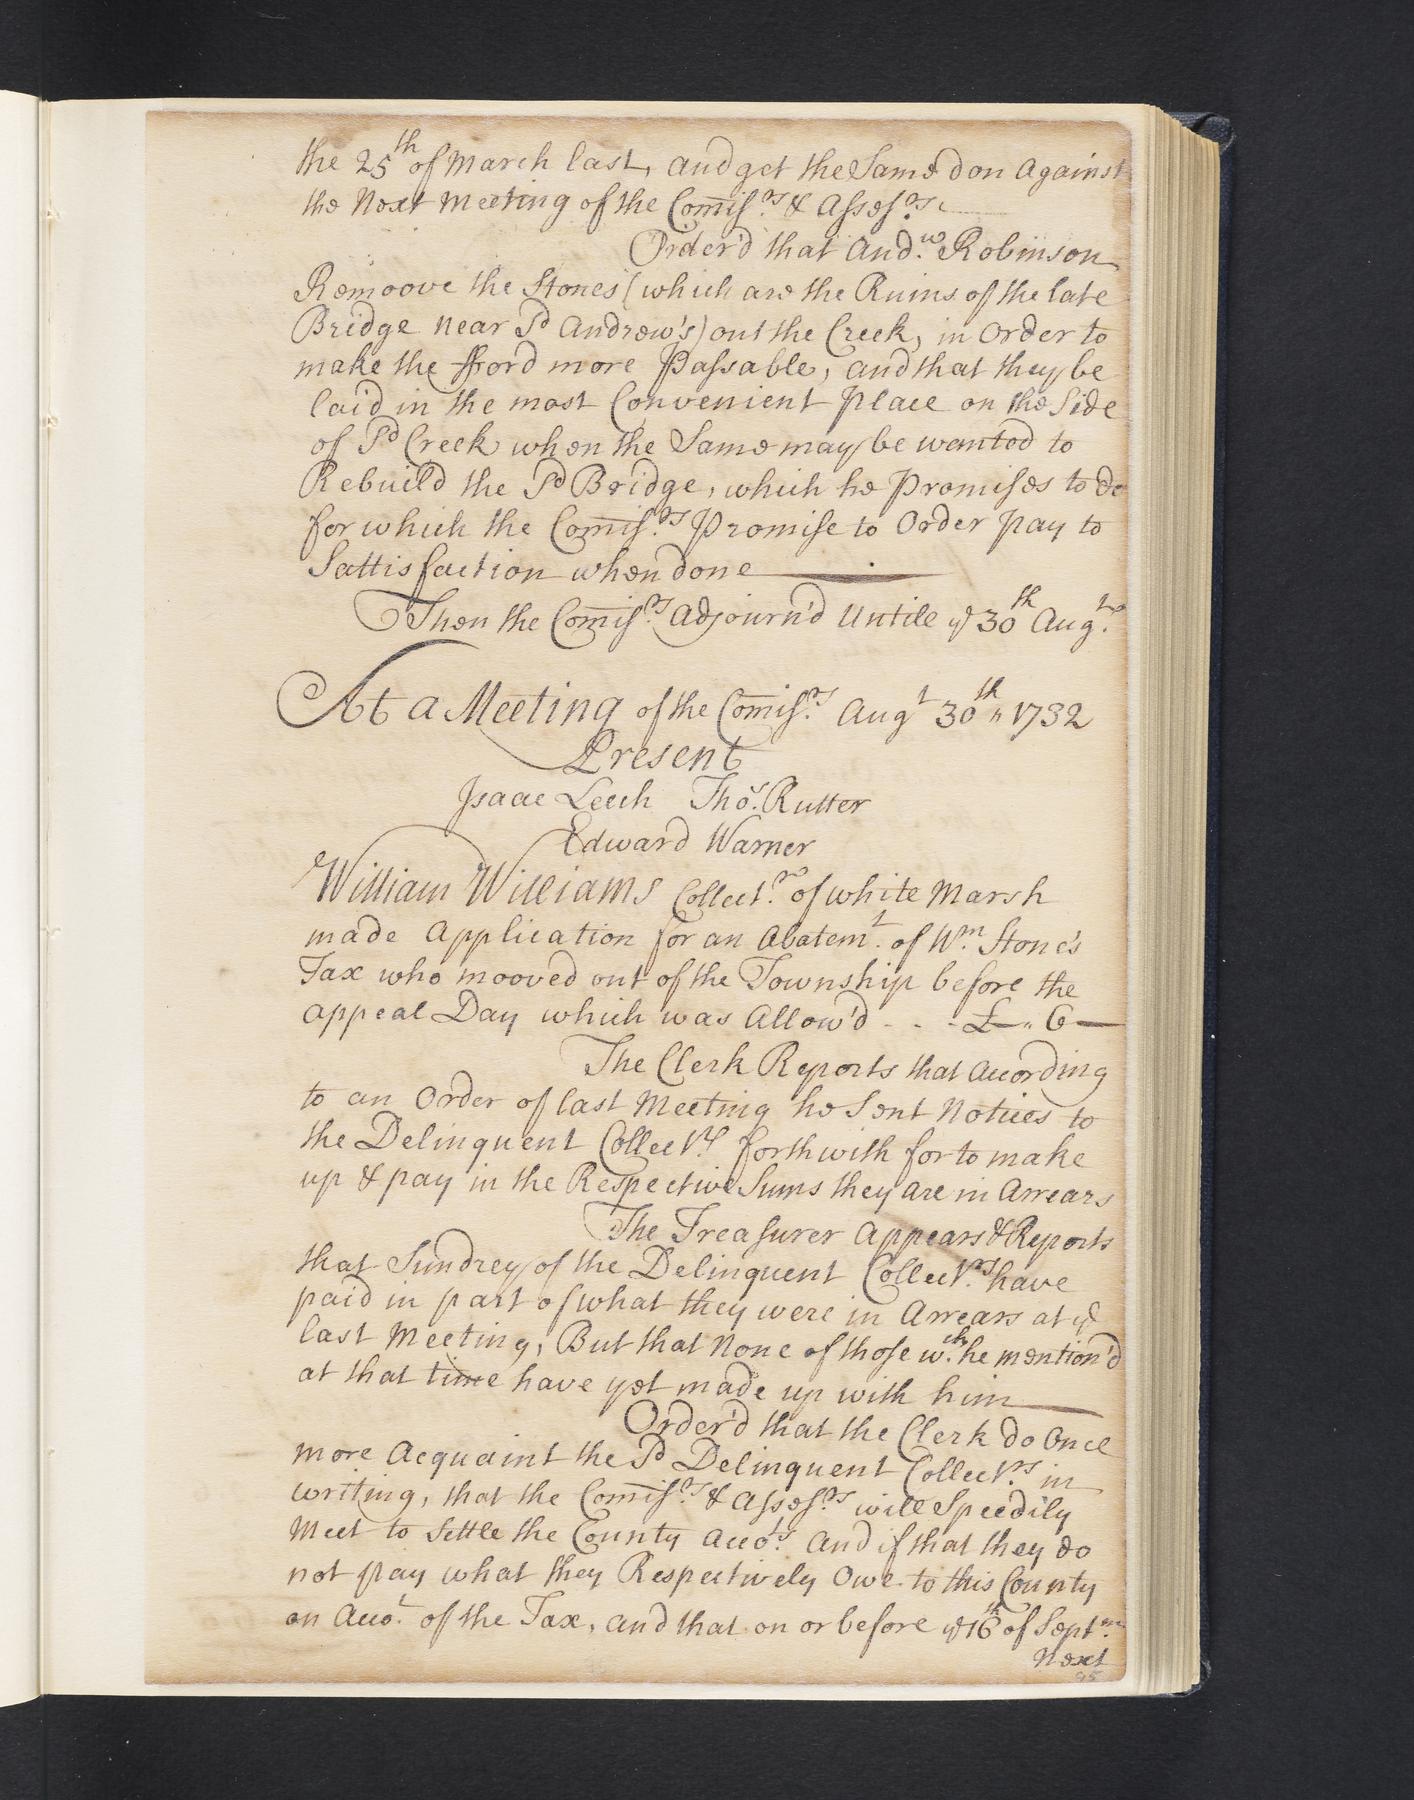 the 25th of March last, and get the Same don Against
the Next Meeting of the Comiss.rs & Assess.rs
Order'd that And.w Robinson
Remoove the Stones (which are the Ruins of the late
Bridge near Sd Andrew's) out the Creek, in Order to
make the fford more Passable, and that they be
laid in the most Convenient Place on the Side
of Sd Creek when the Same may be wanted to
Rebuild the Sd Bridge, which he Promises to do
for which the Comiss.rs Promise to Order pay to
Sattisfaction when done
Then the Comiss.rs Adjourn'd Untile ye 30th Aug.t
At a Meeting of the Comiss.rs Augt 30th 1732
Present
Isaac Leech Thos. Rutter
Edward Warner
William Williams Collect.r of white Marsh
made Application for an Abatem.t of Wm. Stone's
Tax who mooved out of the Township before the
Appeal Day which was Allow'd - - - £— „ 6 —
The Clerk Reports that Acording
to an Order of last Meeting he Sent Notices to
the Delinquent Collect.rs forthwith for to make
up & pay in the Respective Sums they are in Arrears
The Treasurer Appears & Reports
that Sundrey of the Delinquent Collect.rs have
paid in part of what they were in Arrears at ye
last Meeting, But that None of those w.ch he mention'd
at that time have yet made up with him
Order'd that the Clerk do Once
more Acquaint the Sd Delinquent Collect.rs in
writing, that the Comiss.rs & Assess.rs will Speedily
Meet to Settle the County Acco.ts And if that they do
not pay what they Respectively Owe to this County
on Acco.t of the Tax, and that on or before ye 16th of Sept.m
Next
95